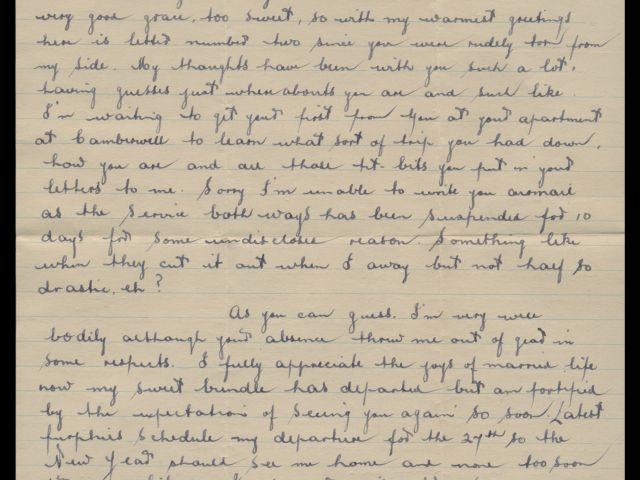 very good grace, too sweet, so with my warmest greetings
here is letter number two since you were rudely torn from
my side. My thoughts have been with you such a lot,
having guesses just whereabouts you are and such like.
I'm waiting to get your first from you at your apartment
at Camberwell to learn what sort of trip you had down,
how you are and all those tit-bits you put in your
letters to me. Sorry I'm unable to write you airmail
as the Service both ways has been suspended for 10
days for some undisclosed reason. Something like
when they cut it out when I away but not half so
drastic, eh?
As you can guess. I'm very well
bodily although your absence threw me out of gear in
some respects. I fully appreciate the joys of married life
now my sweet bundle has departed but am fortified
by the expectation of seeing you again so soon. Latest
furphies schedule my departure for the 27th so the
New Year should see me home and none too soon